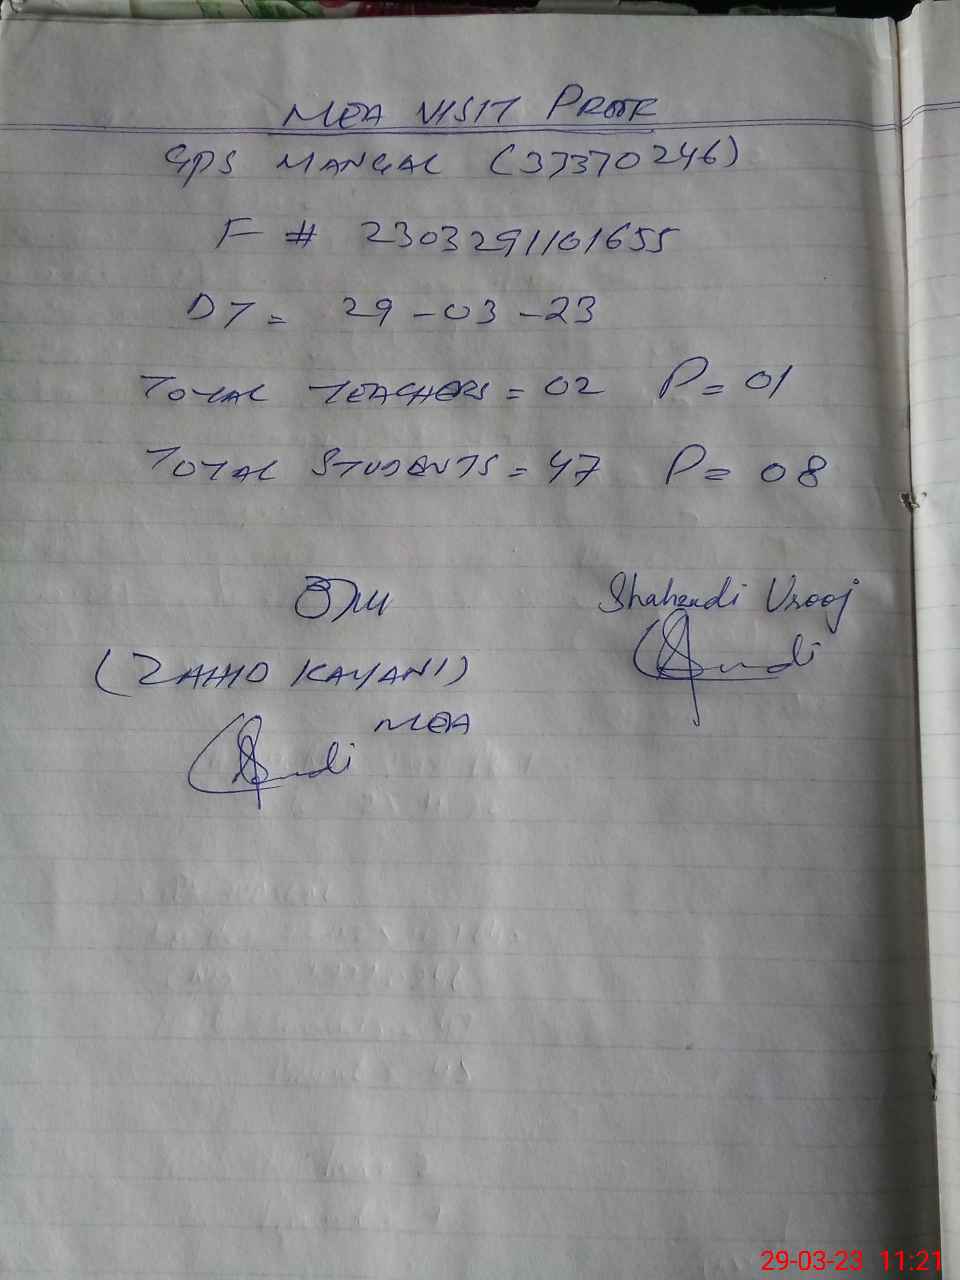 MEA VISIT PROOF
GPS MANGAL (37370246)
F # 2303291101655
DT = 29-03-23
TOTAL TEACHERS = 02 P = 01
TOTAL STUDENTS = 47 P = 08
Shahandi Urooj
(ZAHID KAYANI)
MEA
29-03-23 11:21